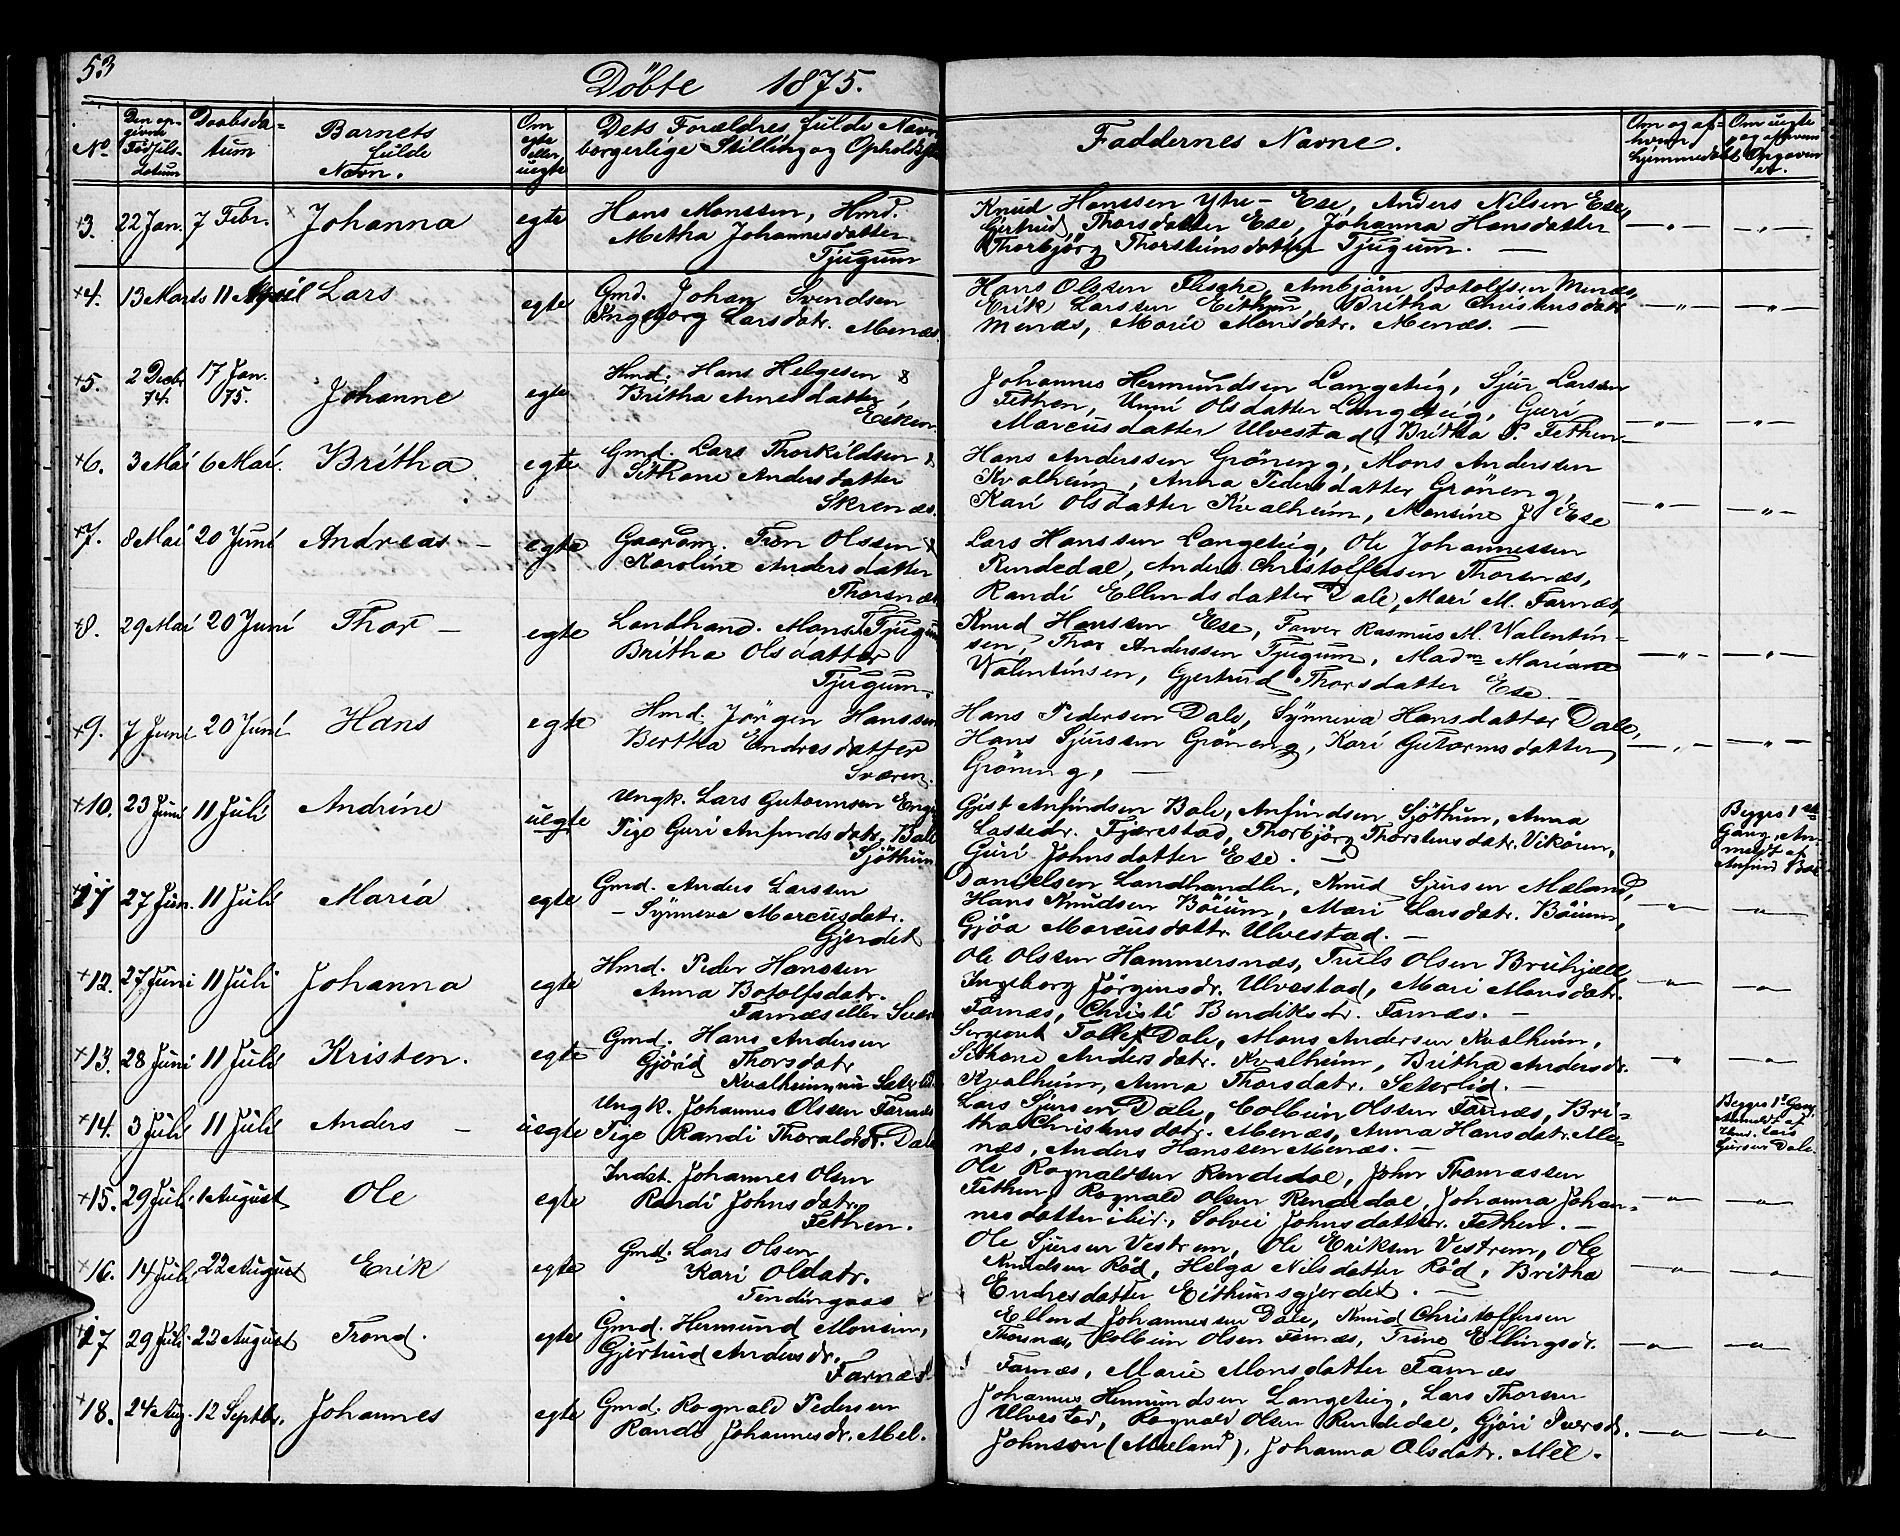 53
Döbte 1875.
No.
Den op-
givne
Födsels-
datum
Daabsda-
tum
Barnets
fulde
Navn.
Om
egte
eller
uegte
Dets Forældres fulde Navn
borgerlige Stilling og Opholds
Faddernes Navne.
Om og af
hvem
hjemmedöbt
Om uegte
og af hvem
Opgaven
er.
3. 22 Jan. 7 Febr. Johanna egte Hans Monssen, Hmd.
Metha Johannesdatter
Tjugum
Knud Hanssen Ytre-Ese, Anders Nilsen Ese,
Gertrud Thorsdatter Ese, Johanna Hansdatter
Thorbjörg Thorsteinsdatter Tjugum. —
4. 13 Marts 11 April Lars egte Gmd. Johan Svendsen
Ingeborg Larsdatr. Menæs.
Hans Olssen Flesche, Ambjörn Botolfsen Menæs,
Erik Larssen Eithun, Britha Christensdatr
Menæs, Marie Monsdatr. Menæs. —
5. 2 Decbr 74. 17 Jan. 75. Johanne egte Hmd. Hans Helgesen &
Britha Arnesdatter
Eiken.
Johannes Hermundsen Langeteig, Sjur Larsen
Fethen, Unni Olsdatter Langeteig, Guri
Marcusdatter Ulvestad, Britha P. Fethen.
6. 3 Mai 6 Mai. Britha egte Gmd. Lars Thorkildsen &
Sithane Andersdatter
Skrenæs.
Hans Anderssen Gröneng, Mons Anderssen
Kvalheim, Anna Pedersdatter Gröneng,
Kari Olsdatter Kvalheim, Monsine J. Ese
7. 8 Mai 20 Juni Andreas — egte Gaardm. Tron Olssen &
Karoline Andersdatter
Thorsnæs
Lars Hanssen Langeteig, Ole Johannessen
Rendedal, Anders Christoffersen Thorsnæs,
Randi Ellendsdatter Dale, Mari M. Farnæs,
8. 29 Mai 20 Juni Thor — egte Landhand. Mons T. Tjugum
Britha Olsdatter
Tjugum.
Knud Hanssen Ese, Farver Rasmus M. Valentin-
sen, Thor Anderssen Tjugum, Madm Mariane
Valentinsen, Gjertrud Thorsdatter Ese —
9. 7 Juni 20 Juni Hans egte Hmd. Jörgen Hanssen
Bertha Endresdatter
Sværen.
Hans Pedersen Dale, Synneva Hansdatter Dale,
Hans Sjurssen Gröneng, Kari Gutormsdatter
Gröneng, —
10. 23 Juni 11 Juli Andrine uegte Ungk. Lars Gutormsen Enge
Pige Guri Anfindsdatr. Bale
Sjöthun
Gjest Anfindsen Bale, Anfindsen Sjöthun, Anna
Lassedr. Fjærestad, Thorbjörg Thorstensdatr. Vikören,
Guri Johnsdatter Ese. —
Begges 1ste
Gang, An-
meldt af
Anfind Bale
11 27 Jun. 11 Juli Maria egte Gmd. Anders Larssen
— Synneva Marcusdatr.
Gjerdet
Danielsen Landhandler, Knud Sjursen Mæland,
Hans Knudsen Böium, Mari Larsdatr. Böium,
Gjöa Marcusdattr. Ulvestad. —
12. 27 Juni 11 Juli Johanna egte Hmd. Peder Hanssen
Anna Botolfsdatr.
Farnæs eller Svær
Ole Olssen Hammersnæs, Truls Olsen Bruhjæll,
Ingeborg Jörgensdr. Ulvestad, Mari Monsdatr.
Farnæs, Christi Bendiksdr. Farnæs. —
13. 28 Juni 11 Juli Kristen. egte Gmd. Hans Andersen
Gjörid Thorsdatr
Kvalheim
Sergeant Tollef Dale, Mons Andersen Kvalheim,
Sithane Andersdatr. Kvalheim, Britha Andersdr.
Kvalheim, Anna Thorsdatr. Sæterlid. —
14. 3 Juli 11 Juli Anders — uegte Ungk. Johannes Olssen Farnæs
Pige Randi Thoraldsdr. Dale
Lars Sjursen Dale, Colbein Olssen Farnæs, Bri-
tha Christensdatr. Menæs, Anna Hansdatr. Me-
næs, Anders Hanssen Menæs. —
Begges 1ste Gang,
Anmeldt af
Hmd. Lars
Sjursen Dale.
15. 29 Juli 1 August Ole egte Indst. Johannes Olsen
Randi Johnsdatr.
Fethen.
Ole Rognaldsen Rendedal, John Thomassen
Fethen, Rognald Olsen Rendedal, Johanna Johan-
nesdatter ibid., Solvei Johnsdatter Fethen. —
16. 14 Juli 22 August Erik egte Gmd. Lars Olsen
Kari Oldatr.
Ole Sjursen Vestrem, Ole Eriksen Vestrem, Ole
Knudsen Röd, Helga Nilsdatter Röd, Britha
Endresdatter Eithunsgjerdet. —
17 29 Juli. 22 August Trond. egte Gmd. Hermund Monsen,
Gjertrud Andersdr.
Farnæs
Ellend Johannessen Dale, Knud Christoffersen
Thorsnæs, Colbein Olsen Farnæs, Trine Ellingsdr.
Farnæs, Marie Monsdatter Farnæs
18. 24 Aug. 12 Septbr. Johannes egte Gmd. Rognald Pedersen
Randi Johannesdr. Mel.
Johannes Hermundsen Langeteig, Lars Thorsen
Ulvestad, Rognald Olsen Rendedal, Gjöri Iversdr.
Johnson (Mæland), Johanna Olsdatr. Mel.